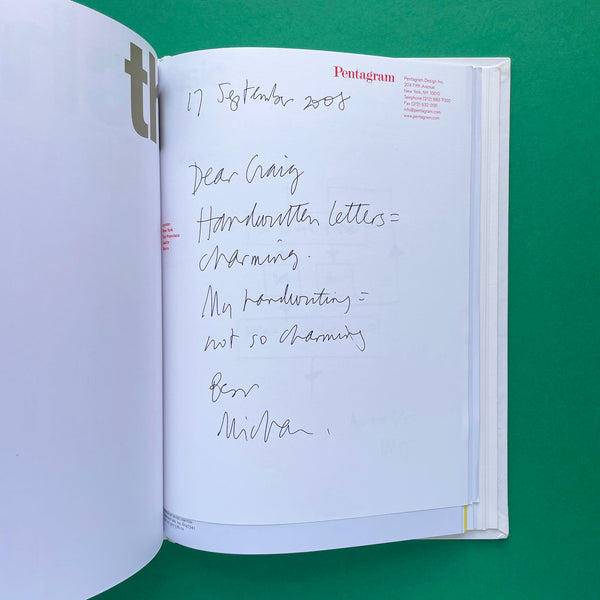 th
Pentagram
Pentagram Design Inc.
204 Fifth Avenue
New York, NY 10010
Telephone (212) 683 7000
Fax (212) 532 0181
info@pentagram.com
www.pentagram.com
17 September 2008
Dear Craig
Handwritten letters =
charming.
My handwriting =
not so charming
Best
Michael.